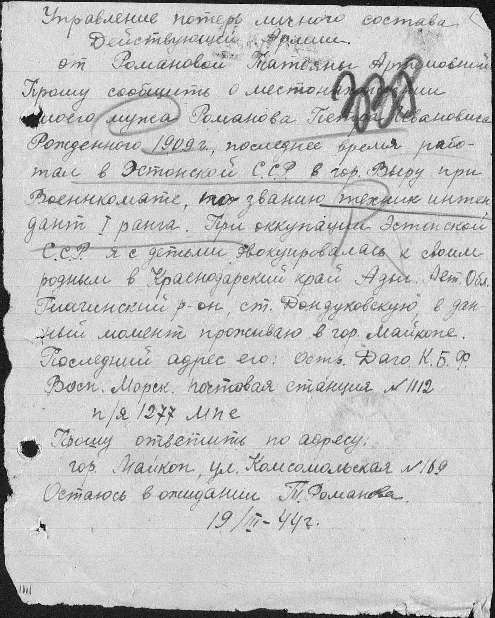 Управление потерь личного состава
Действующей Армии.
от Романовой Татьяны Артёмовны
Прошу сообщить о местонахождении
моего мужа Романова Петра Ивановича
Рожденного 1909 г., последнее время рабо-
тал в Эстонской ССР в гор. Выру при
Военкомате, по званию техник интен-
дант I ранга. При оккупации Эстонской
ССР я с детьми эвокуировалась к своим
родным в Краснодарский край Адыг. Авт. Обл.
Гиагинский р-он, ст. Дондуковскую, в дан-
ный момент проживаю в гор. Майкопе.
Последний адрес его: Ость. Даго. К.Б.Ф.
Воен. Морск. почтовая станция N 1112
п/я 1277 мпе
Прошу ответить по адресу:
гор. Майкоп, ул. Комсомольская N 169
Остаюсь в ожидании Т. Романова.
19/III-44 г.